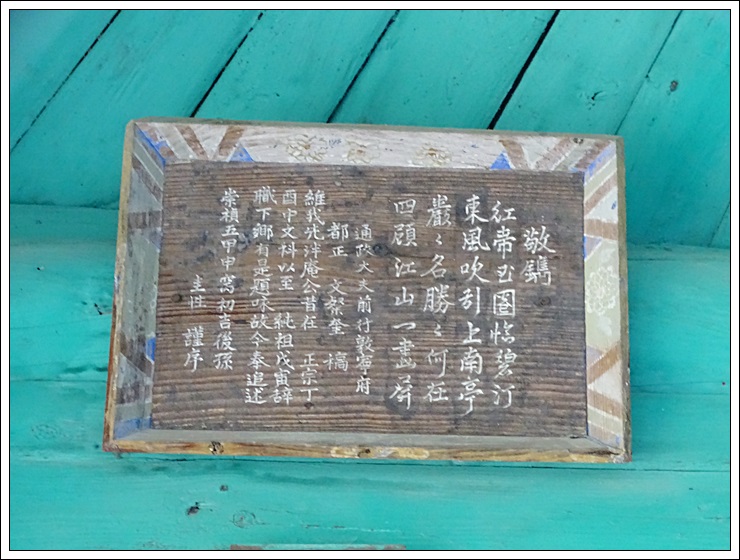 敬鐫
紅帶㠯圍臨碧汀
東風吹到上南亭
巖〻名勝〻何在
四顧江山一畵屏
通政大夫前行敦寧府
都正 文發鎣 稿
維我先泮庵公昔在 正宗丁
酉中文科以至 純祖戊寅辭
職下鄉有是題咏故今奉追述
崇禎五甲申 初吉後孫
圭性 謹序